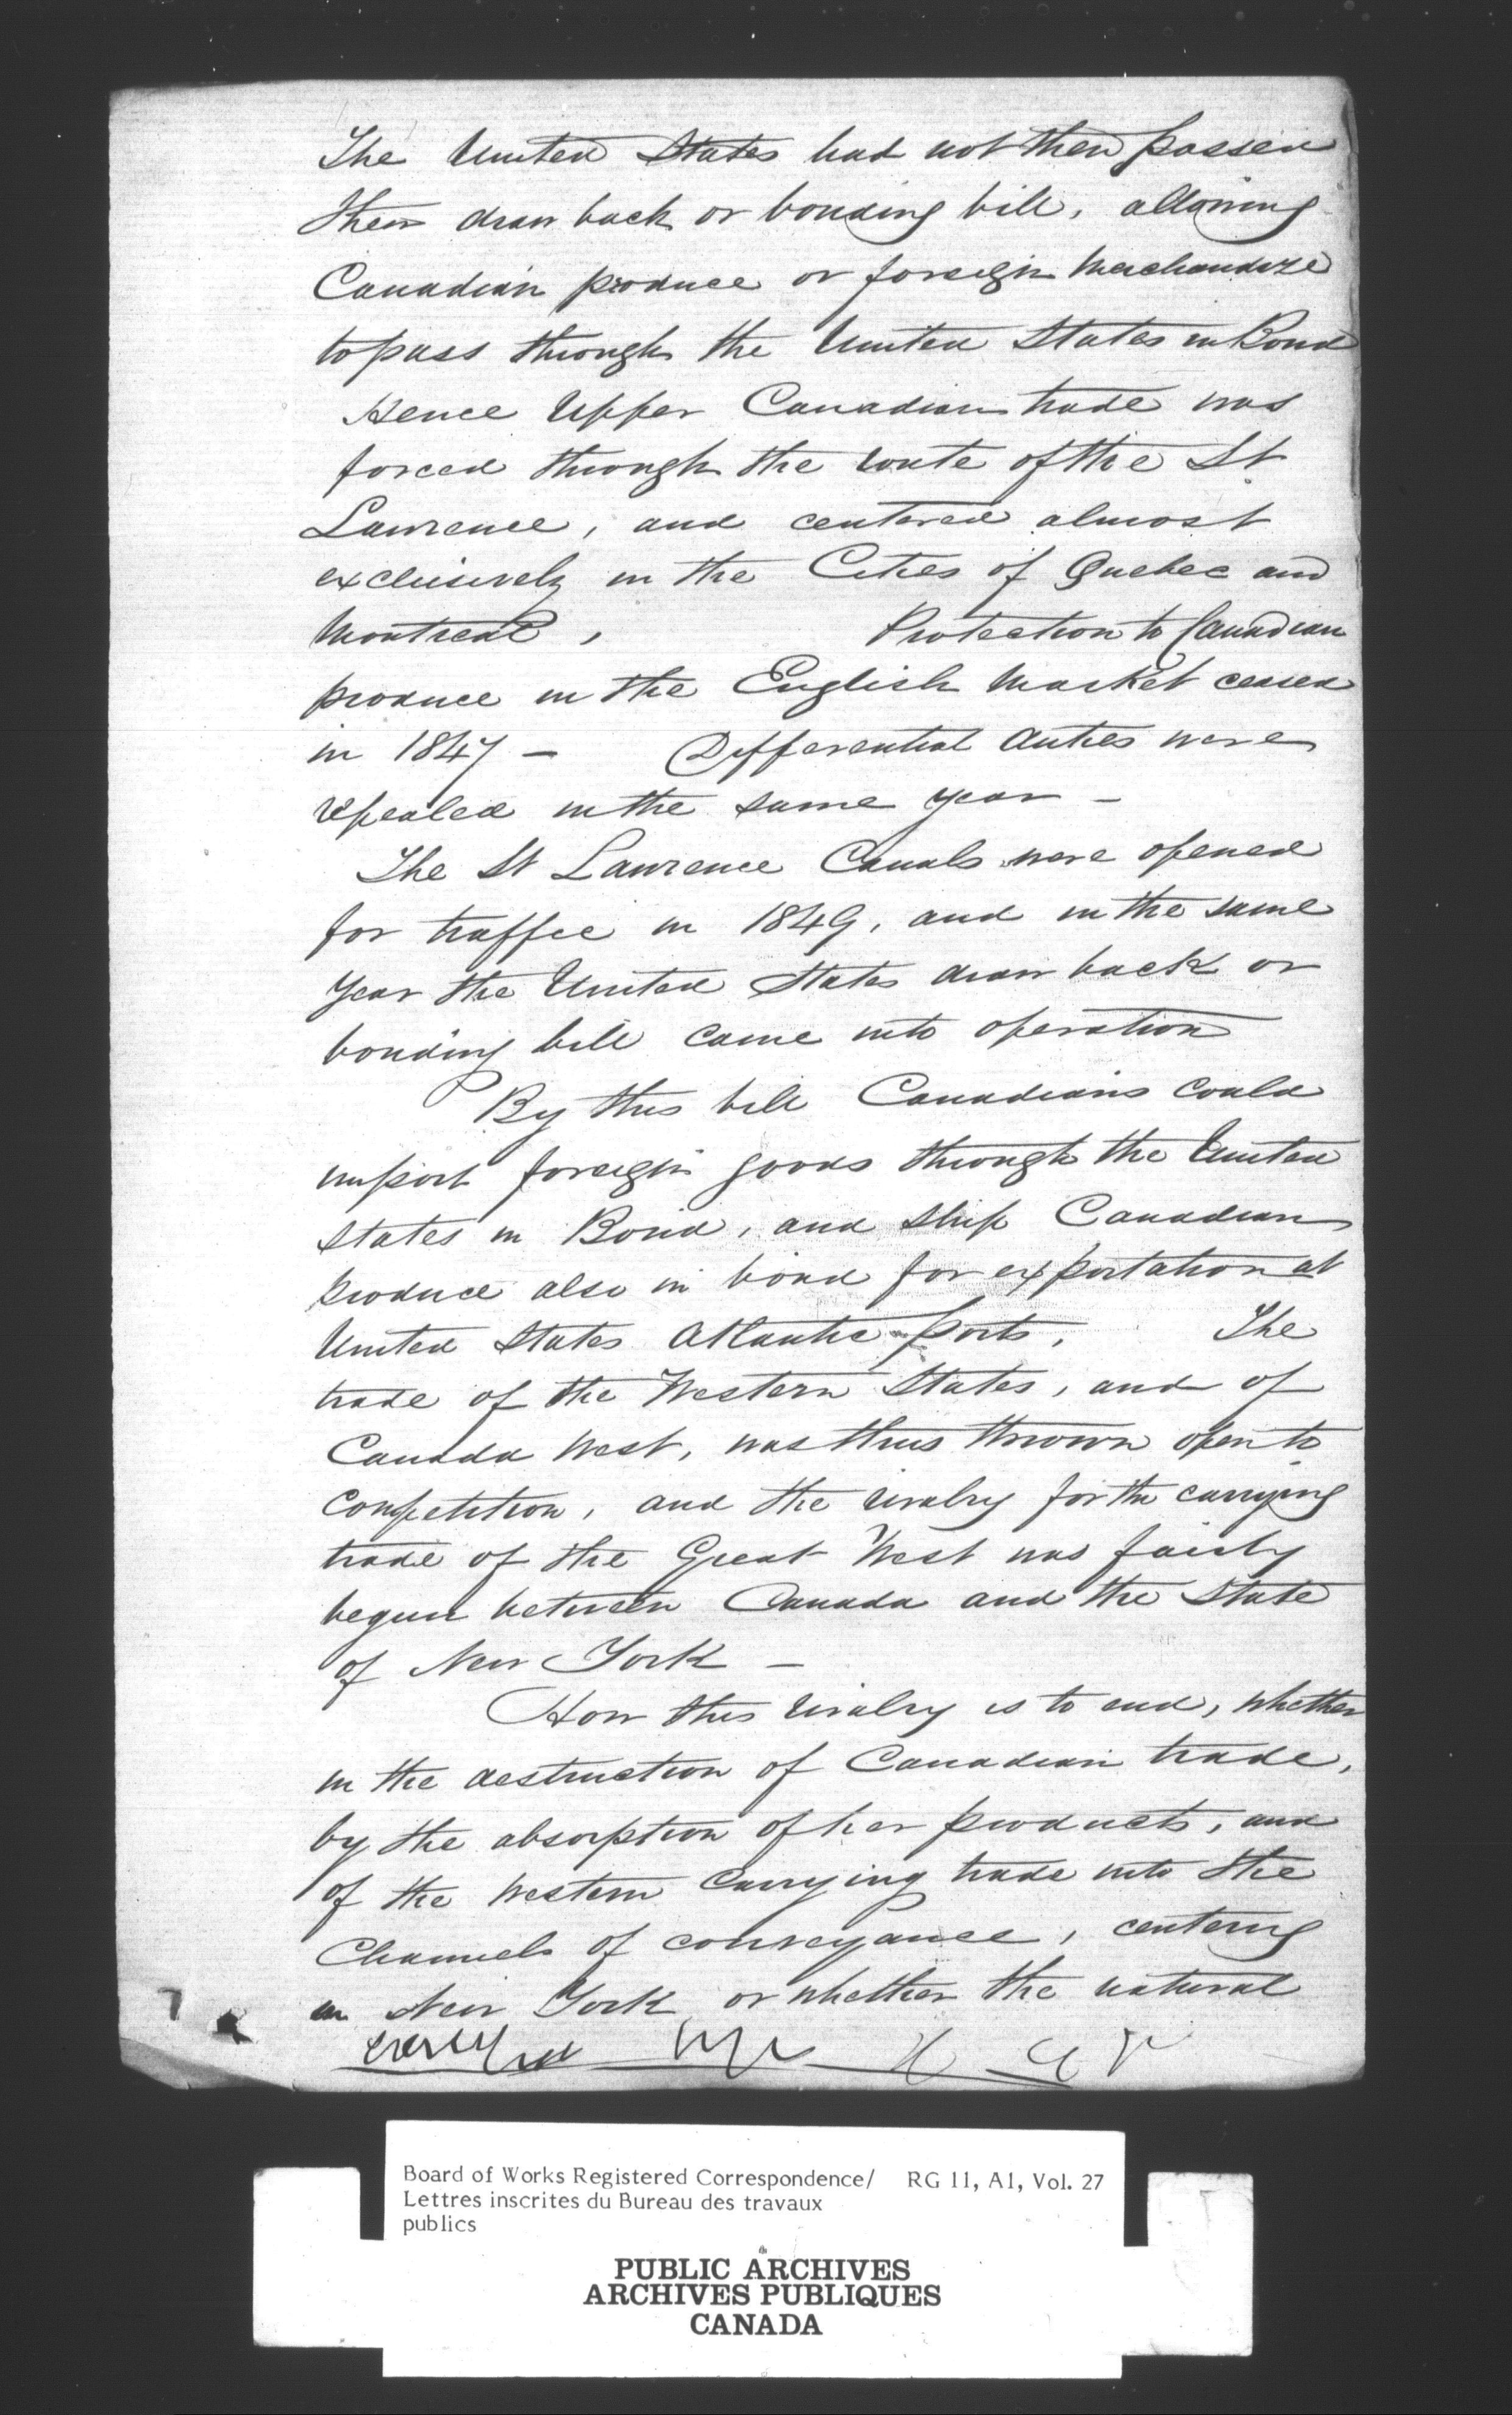 The United States had not then passed
their draw back or bonding bill, allowing
Canadian produce or foreign Merchandize
to pass through the United States in Bond
Hence Upper Canadian trade was
forced through the route of the St
Lawrence, and centered almost
exclusively in the Cities of Quebec and
Montreal, Protection to Canadian
produce in the English Market ceased
in 1847 — Differential duties were
repealed in the same year —
The St Lawrence Canals were opened
for traffic in 1849, and in the same
year the United States draw back or
bonding bill came into operation
By this bill Canadians could
import foreign goods through the United
States in Bond, and ship Canadian
produce also in bond for exportation at
United States Atlantic ports, The
trade of the Western States, and of
Canada West, was thus thrown open to
Competition, and the rivalry for the carrying
trade of the Great West was fairly
begun between Canada and the State
of New York —
How this rivalry is to end, whether
in the destruction of Canadian trade,
by the absorption of her products, and
of the Western Carrying trade into the
Channels of conveyance, centering
in New York or whether the natural
Board of Works Registered Correspondence/ RG 11, A1, Vol. 27
Lettres inscrites du Bureau des travaux
publics
PUBLIC ARCHIVES
ARCHIVES PUBLIQUES
CANADA